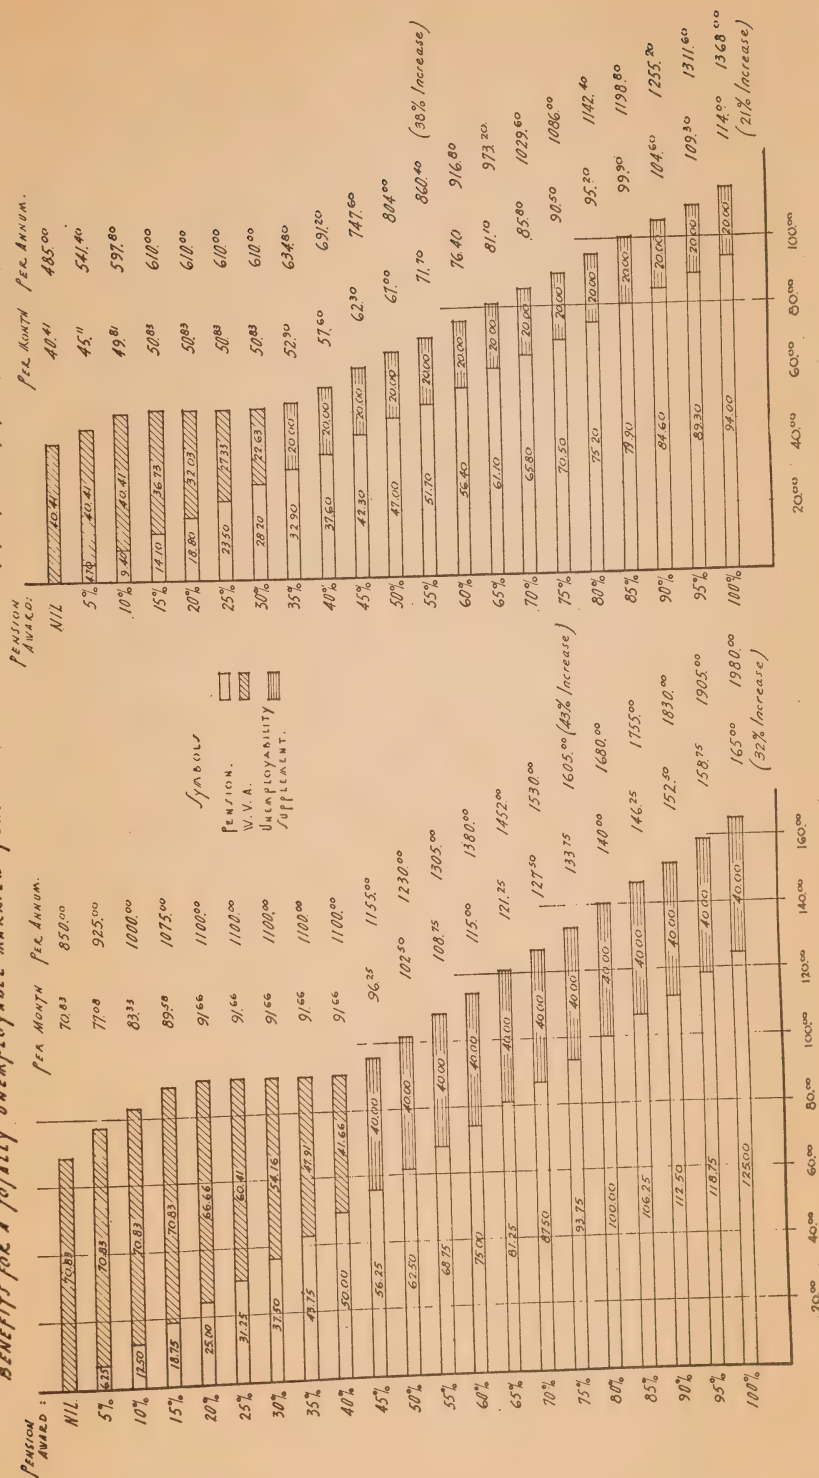 BENEFITS FOR A TOTALLY UNEMPLOYABLE MARRIED
PENSION AWARD:
PER MONTH PER ANNUM.
NIL 70.83 70.83 850.00
5% 6.25 70.83 77.08 925.00
10% 12.50 70.83 83.33 1000.00
15% 18.75 70.83 89.58 1075.00
20% 25.00 66.66 91.66 1100.00
25% 31.25 60.41 91.66 1100.00
30% 37.50 54.16 91.66 1100.00
35% 43.75 47.91 91.66 1100.00
40% 50.00 41.66 91.66 1100.00
45% 56.25 40.00 96.25 1155.00
50% 62.50 40.00 102.50 1230.00
55% 68.75 40.00 108.75 1305.00
60% 75.00 40.00 115.00 1380.00
65% 81.25 40.00 121.25 1452.00
70% 87.50 40.00 127.50 1530.00
75% 93.75 40.00 133.75 1605.00 (43% Increase)
80% 100.00 40.00 140.00 1680.00
85% 106.25 40.00 146.25 1755.00
90% 112.50 40.00 152.50 1830.00
95% 118.75 40.00 158.75 1905.00
100% 125.00 40.00 165.00 1980.00
(32% Increase)
20.00 40.00 60.00 80.00 100.00 120.00 140.00 160.00
SYMBOLS
PENSION.
W.V.A.
UNEMPLOYABILITY
SUPPLEMENT.
PENSION
AWARD:
PER MONTH PER ANNUM.
NIL 40.41 40.41 485.00
5% 4.70 40.41 45.11 541.40
10% 9.40 40.41 49.81 597.80
15% 14.10 36.73 50.83 610.00
20% 18.80 32.03 50.83 610.00
25% 23.50 27.33 50.83 610.00
30% 28.20 22.63 50.83 610.00
35% 32.90 20.00 52.90 634.80
40% 37.60 20.00 57.60 691.20
45% 42.30 20.00 62.30 747.60
50% 47.00 20.00 67.00 804.00
55% 51.70 20.00 71.70 860.40 (38% Increase)
60% 56.40 20.00 76.40 916.80
65% 61.10 20.00 81.10 973.20.
70% 65.80 20.00 85.80 1029.60
75% 70.50 20.00 90.50 1086.00
80% 75.20 20.00 95.20 1142.40
85% 79.90 20.00 99.90 1198.80
90% 84.60 20.00 104.60 1255.20
95% 89.30 20.00 109.30 1311.60
100% 94.00 20.00 114.00 1368.00
(21% Increase)
20.00 40.00 60.00 80.00 100.00